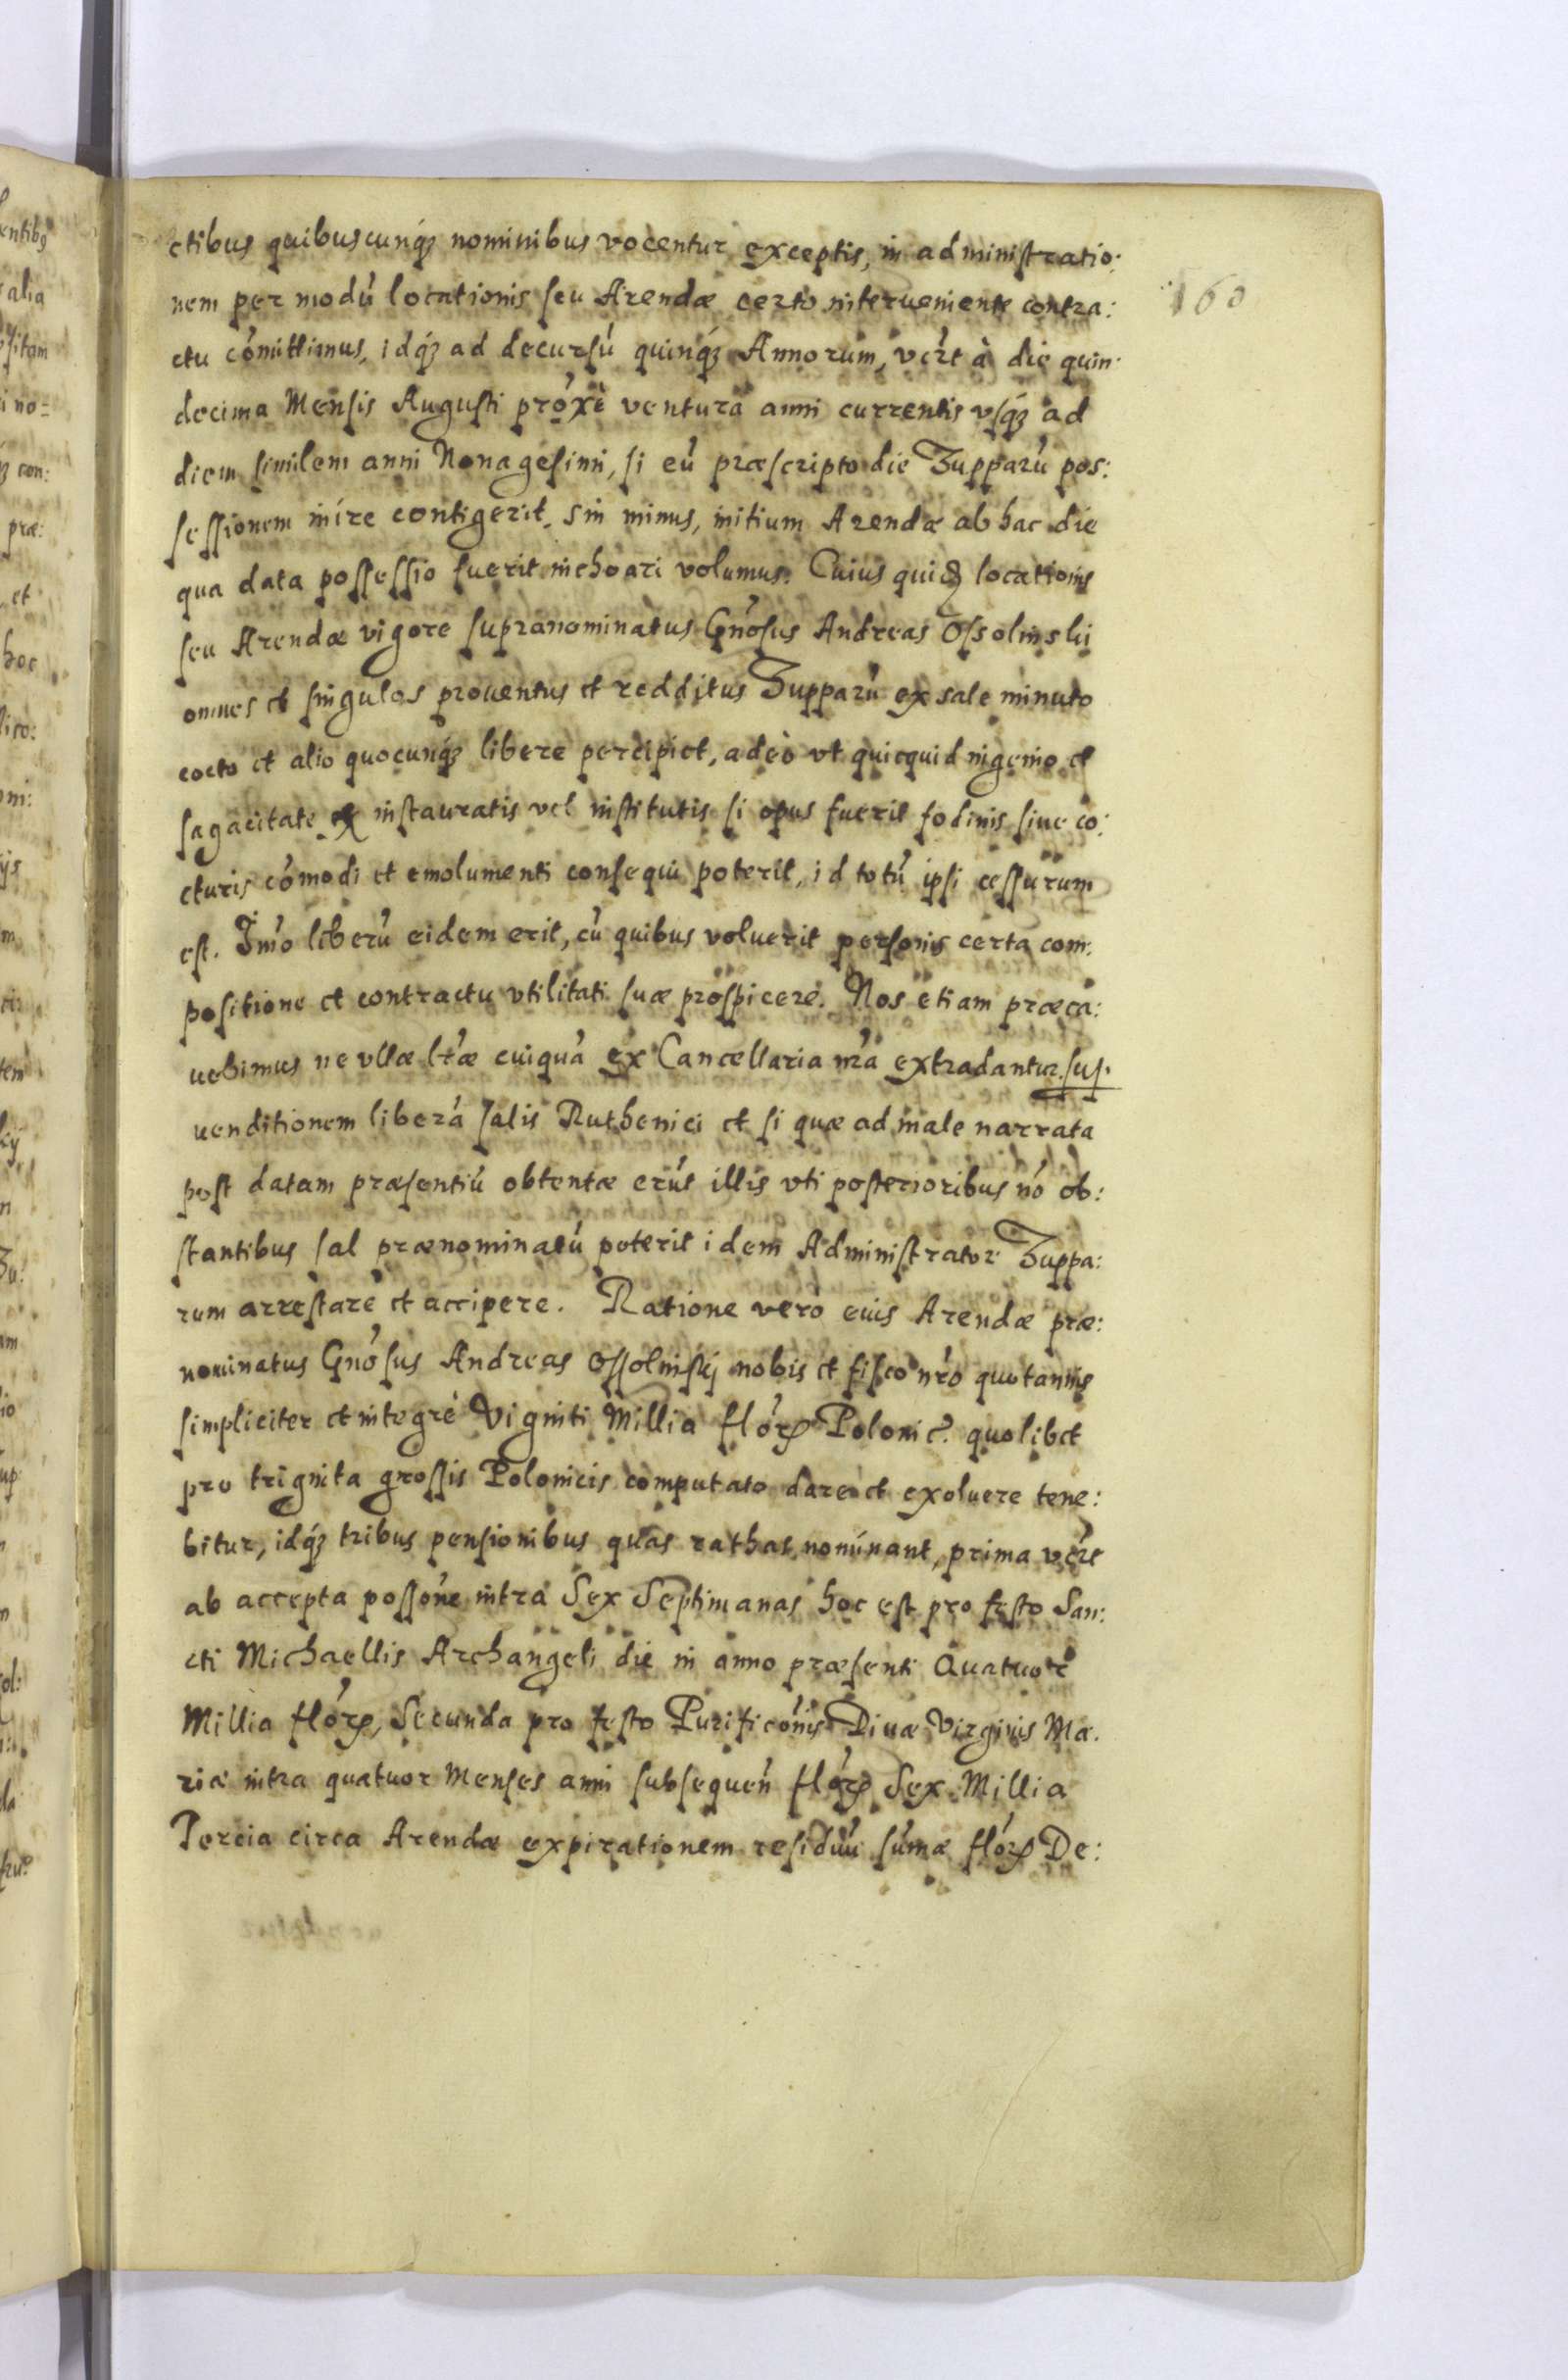 160
ctibus quibuscunq́ꝫ nominibus vocentur exceptis, in administratio:
nem per modú locationis seu Arendæ certo interueniente contra:
ctu cómittimus, idq́ꝫ ad decursú quinq́ꝫ Annorum, vczt à die quin:
decima Mensis Augusti próxè ventura anni currentis vsq́ꝫ ad
diem similem anni Nonagesimi, si eú præscripto die Zupparú pos:
sessionem inire contigerit, sin minus, initium Arendæ ab hac die
qua data possessio fuerit inchoari volumus. Cuius quidē locationis
seu Arendæ vigore supranominatus Gnósus Andreas Ossolinski
omnes et singulos prouentus et redditus Zupparú ex sale minuto
cocto et alio quocunq́ꝫ libere percipiet, adeò vt quicquid ingenio et
sagacitate ex instauratis vel institutis si opus fuerit fodinis siue co:
cturis cómodi et emolumenti consequi poterit, id totú ipsi cessurum
est. Imó liberú eidem erit, cú quibus voluerit personis certa com:
positione et contractu vtilitati suæ prospicere. Nos etiam præca:
uebimus ne vllæ lræ cuiquá ex Cancellaria nrá extradantur
uenditionem liberá salis Ruthenici et si quæ ad male narrata
post datam præsentiú obtentæ erút illis vti posterioribus nó ob:
stantibus sal prænominatú poterit idem Administrator Zuppa:
rum arrestare et accipere. Ratione verò eius Arendæ præ:
nominatus Gnósus Andreas Ossolinsky nobis et fisco nró quotannis
simpliciter et integrè Viginti Millia flórꝝ Polonic. quolibet
pro triginta grossis Polonicis computato dare et exoluere tene:
bitur, idq́ꝫ tribus pensionibus quas rathas nominant, prima vczt
ab accepta possóne intra Sex Septimanas hoc est pro festo San:
cti Michaellis Archangeli die in anno præsenti Quatuor
Millia flórꝝ, Secunda pro festo Purificónis Diuæ Virginis Ma:
riæ intra quatuor Menses anni subsequeń flórꝝ Sex Millia
Tercia circa Arendæ expirationem residuú súmæ flórꝝ De: